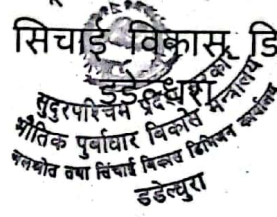 सिचाई विकास डि
डडेल्धुरा
सुदुरपश्चिम प्रदेश सरकार
भौतिक पुर्वाधार विकास मन्त्रालय
जलस्रोत तथा सिंचाई विकास डिभिजन कार्यालय
डडेल्धुरा